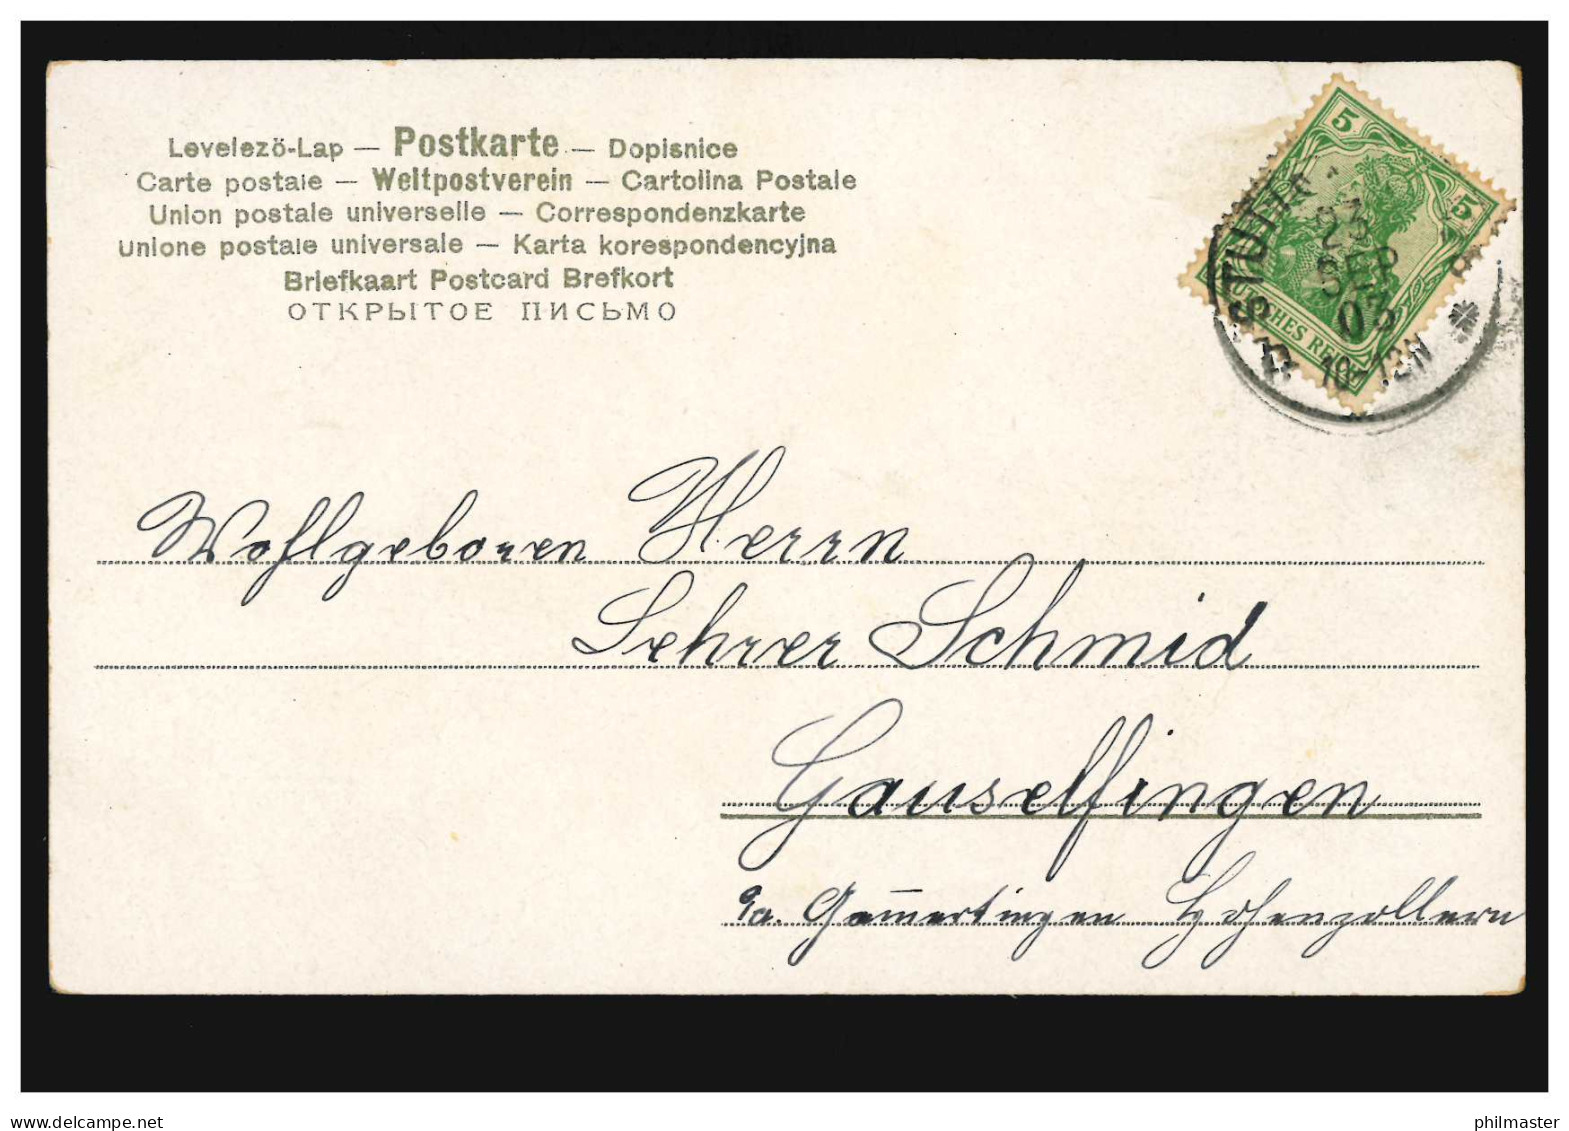 Levelezö-Lap — Postkarte — Dopisnice
Carte postale — Weltpostverein — Cartolina Postale
Union postale universelle — Correspondenzkarte
Unione postale universale — Karta korespondencyjna
Briefkaart Postcard Brefkort
ОТКРЫТОЕ ПИСЬМО
5
5
23
SEP
03
10-12N
Wohlgeboren Herrn
Lehrer Schmid
Gauselfingen
Gamertingen Hohenzollern
delcampe.net
philmaster